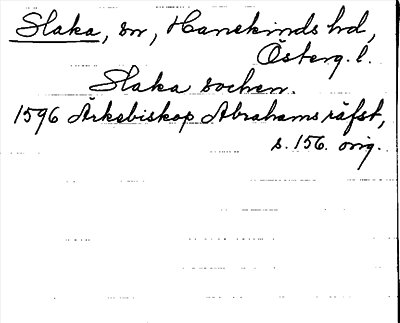 Slaka, sn, Hanekinds hd,
Österg. l.
Slaka sochen.
1596 Ärkebiskop Abrahams räfst,
s. 156. orig.